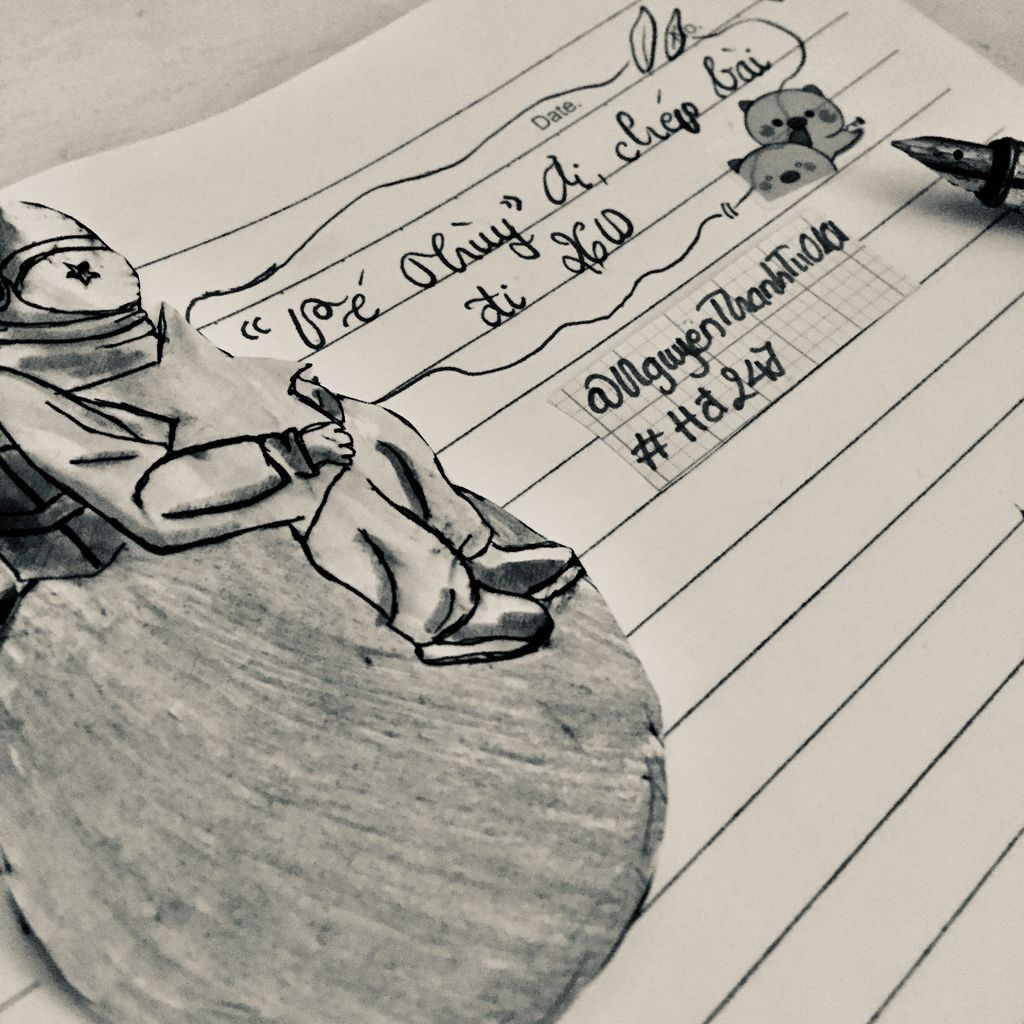 No.
Date.
“Bé Thùy” đi, chép bài
đi
"
@NguyenThanhTu
# Hđ 247